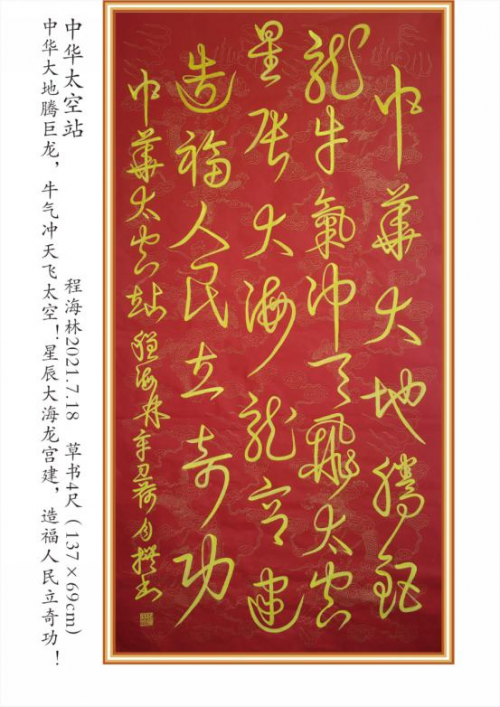 中華大地騰鉅
龍牛氣沖天飛太空
星辰大海龍宮建
造福人民立奇功
中華太空站 程海林辛丑荷月撰书
中华太空站
程海林2021.7.18 草书4尺（137×69cm）
中华大地腾巨龙，牛气冲天飞太空！星辰大海龙宫建，造福人民立奇功！